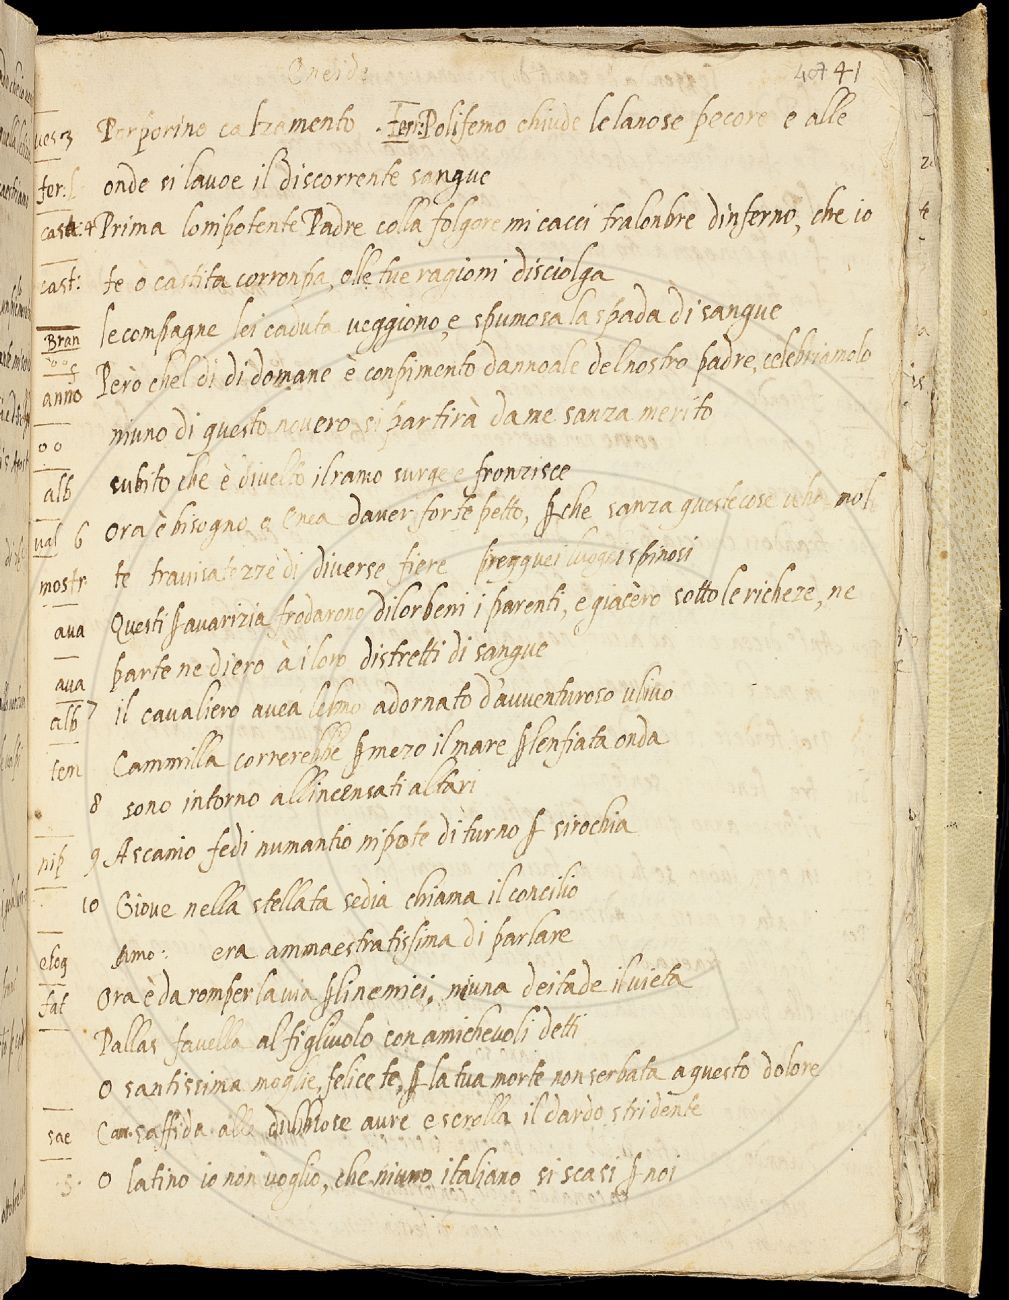 Eneide 40+ 41
ves 3 Porporino calzamento . Fer: Polifemo chiude le lanose pecore e alle
fer: onde si lavoe il discorrente sangue
casti: 4 Prima lonipotente Padre colla folgore mi cacci fralonbre dinferno, che io
cast: te ò castita corronpa, olle tue ragioni disciolga
le compagne lei caduta veggiono, e spumosa la spada di sangue
Bran
oo
anno Però chel di di domane è conpimento dannoale del nostro padre, celebriamolo
oo niuno di questo novero si partirà da me sanza merito
alb subito che è divelto il ramo surge e fronzisce
val 6 Ora è bisogno o Enea daver forte petto, ꝑche sanza queste cose vha mol
mostr te travisatezze di diverse fiere ꝑ luoghi spinosi
ava Questi ꝑ avarizia frodarono dilorbeni i parenti, e giacèro sotto le richeze, ne
ava parte ne diero à i loro distretti di sangue
alb 7 il cavaliero avea lelmo adornato d'avventuroso ulivo
tem Cammilla correrebbe ꝑ mezo il mare ꝑ lenfiata onda
8 sono intorno allincensati altari
nip 9 Ascanio fedi numantio nipote di turno ꝑ sirochia
10 Giove nella stellata sedia chiama il concilio
elog Amo: era ammaestratissima di parlare
fat Ora è da romper la via ꝑ linemici, niuna deitade il vieta
Pallas favella al figliuolo con amichevoli detti
O santissima moglie, felice te, ꝑ la tua morte non serbata a questo dolore
sae saffida alle dubbiose aure e scrolla il dardo stridente
O latino io non voglio, che niuno italiano si scasi ꝑ noi